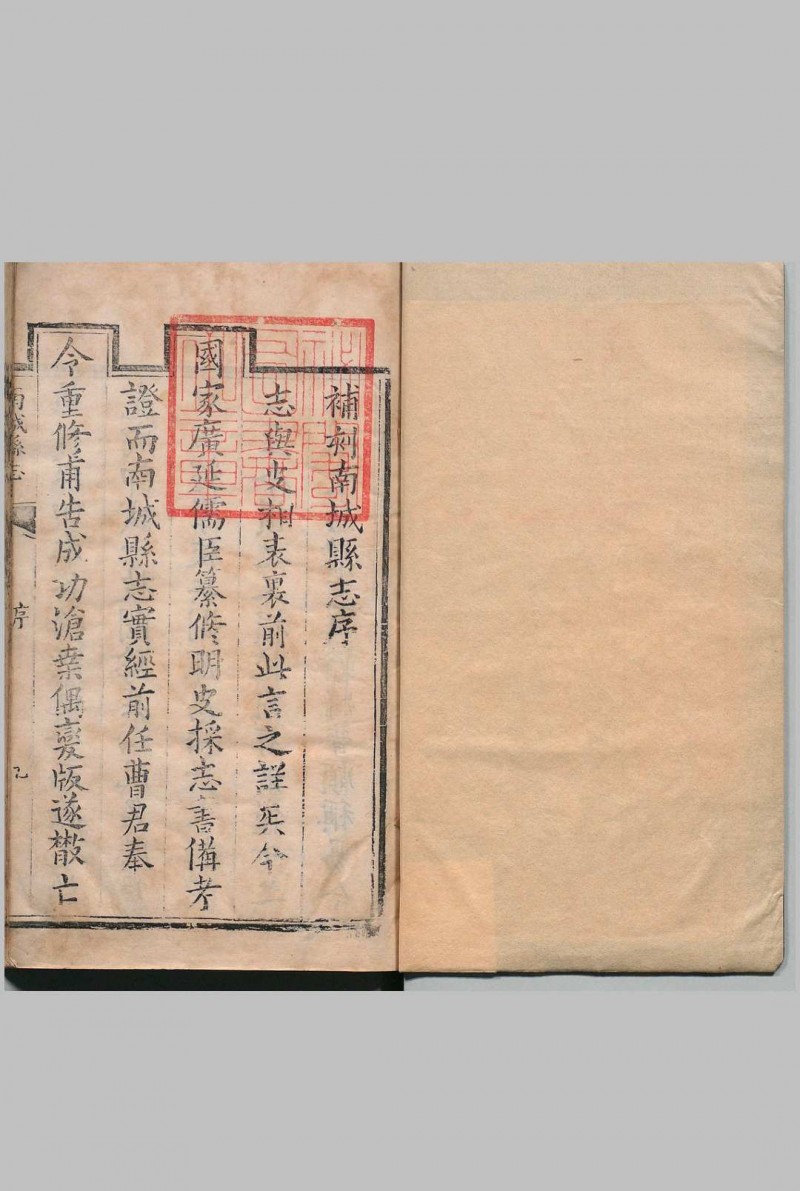 補刻南城縣志序
志與史相表裏前此言之詳矣今
國家廣延儒臣纂修明史採志書備考
證而南城縣志實經前任曹君奉
令重修甫告成功滄桑偶變版遂散亡
南城縣志
序